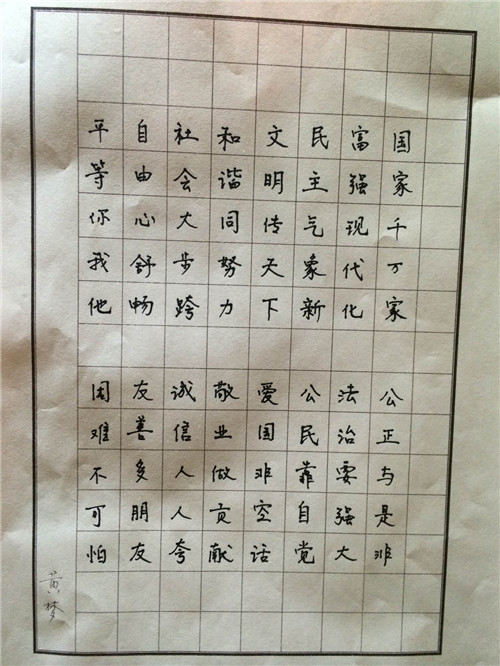 国家千万家
富强现代化
民主气象新
文明传天下
和谐同努力
社会大步跨
自由心舒畅
平等你我他
公正与是非
法治要强大
公民靠自觉
爱国非空话
敬业做贡献
诚信人人夸
友善多朋友
困难不可怕
黄梦